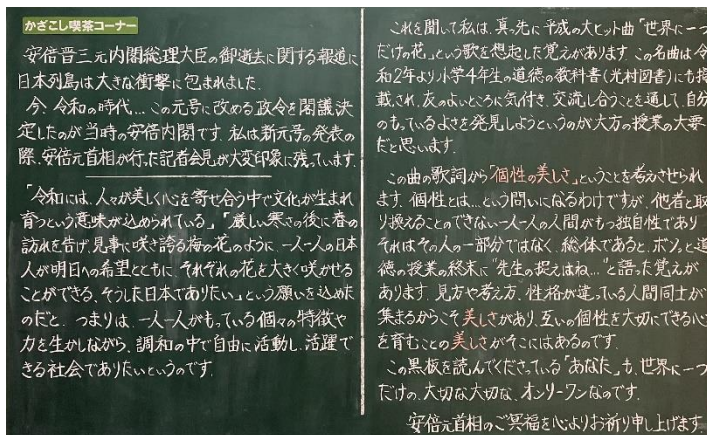 かざこし喫茶コーナー
安倍晋三元内閣総理大臣の御逝去に関する報道に
日本列島は大きな衝撃に包まれました。
今、令和の時代…この元号に改める政令を閣議決
定したのが当時の安倍内閣です。私は新元号の発表の
際、安倍元首相が行った記者会見が大変印象に残っています。
「令和には、人々が美しく心を寄せ合う中で文化が生まれ
育つという意味が込められている」「厳しい寒さの後に春の
訪れを告げ、見事に咲き誇る梅の花のように、一人一人の日本
人が明日への希望とともに、それぞれの花を大きく咲かせる
ことができる、そうした日本でありたい」という願いを込めた
のだと。つまりは、一人一人がもっている個々の特徴や
力を生かしながら、調和の中で自由に活動し、活躍で
きる社会でありたいというのです。
これを聞いて私は、真っ先に平成の大ヒット曲「世界に一つ
だけの花」という歌を想起した覚えがあります。この名曲は令
和2年より小学4年生の道徳の教科書(光村図書)にも掲
載され、友のよいところに気付き、交流し合うことを通して、自分
のもっているよさを発見しようというのが大方の授業の大要
だと思います。
この曲の歌詞から「個性の美しさ」ということを考えさせられ
ます。個性とは…という問いになるわけですが、他者と取
り換えることのできない一人一人の人間がもつ独自性であり
それはその人の一部分ではなく、総体であると、ボソッと道
徳の授業の終末に"先生の捉えはね…"と語った覚えが
あります。見方や考え方、性格が違っている人間同士が
集まるからこそ美しさがあり、互いの個性を大切にできる心
を育むことの美しさがそこにはあるのです。
この黒板を読んでくださっている「あなた」も、世界に一つ
だけの、大切な大切な、オンリーワンなのです。
安倍元首相のご冥福を心よりお祈り申し上げます。